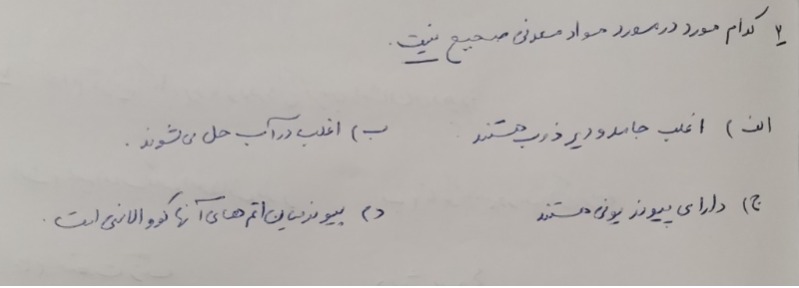 ۲ کدام مورد در مورد مواد معدنی صحیح نیست.
الف) اغلب جامد و دیر ذوب هستند ب) اغلب در آب حل می‌شوند.
ج) دارای پیوند یونی هستند د) پیوند بین اتم‌های آنها کووالانسی است.